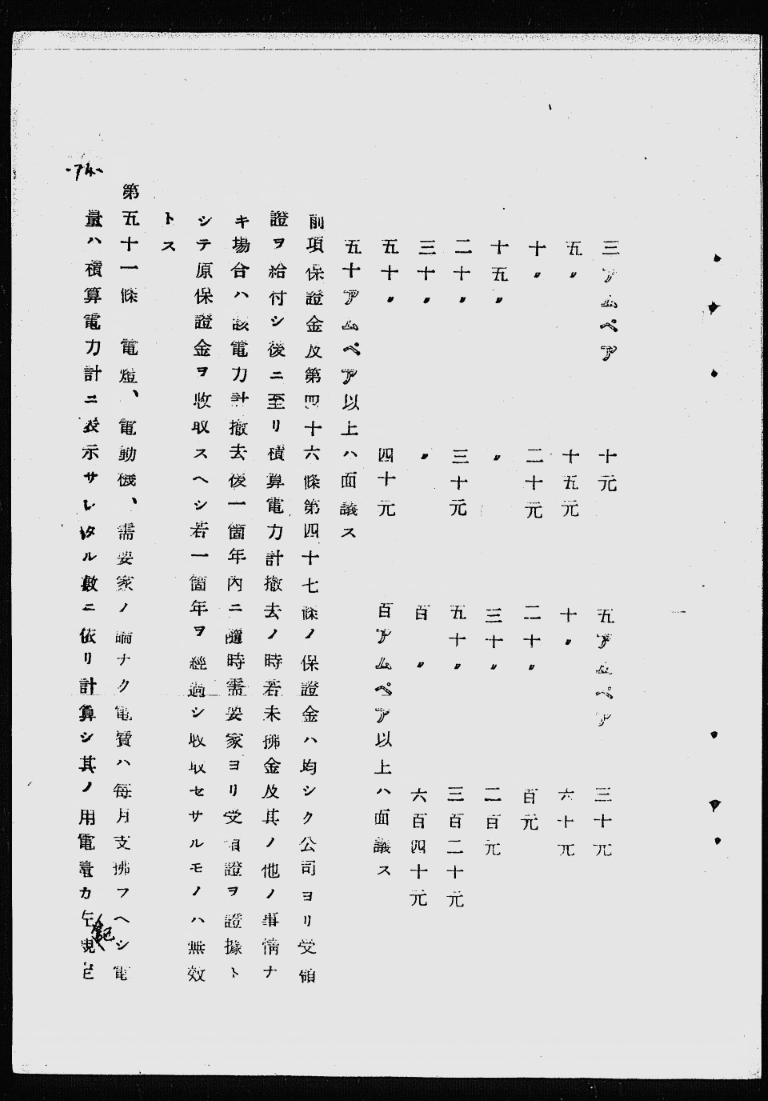 三アムペア　十元　五アムペア　三十元
五〃　十五元　十〃　六十元
十〃　二十元　二十〃　百元
十五〃　〃　三十〃　二百元
二十〃　三十元　五十〃　三百二十元
三十〃　〃　百〃　六百四十元
五十〃　四十元　百アムペア以上ハ面議ス
五十アムペア以上ハ面議ス
前項保證金及第四十六條第四十七條ノ保證金ハ均シク公司ヨリ受領
證ヲ給付シ後ニ至リ積算電力計撤去ノ時若未拂金及其ノ他ノ事情ナ
キ場合ハ該電力計撤去後一箇年內ニ隨時需要家ヨリ受領證ヲ證據ト
シテ原保證金ヲ收取スヘシ若一箇年ヲ經過シ收取セサルモノハ無效
トス
第五十一條　電燈、電動機、需要家ノ論ナク電費ハ每月支拂フヘシ電
量ハ積算電力計ニ表示サレタル數ニ依リ計算シ其ノ用電量カ 記規定
-74-